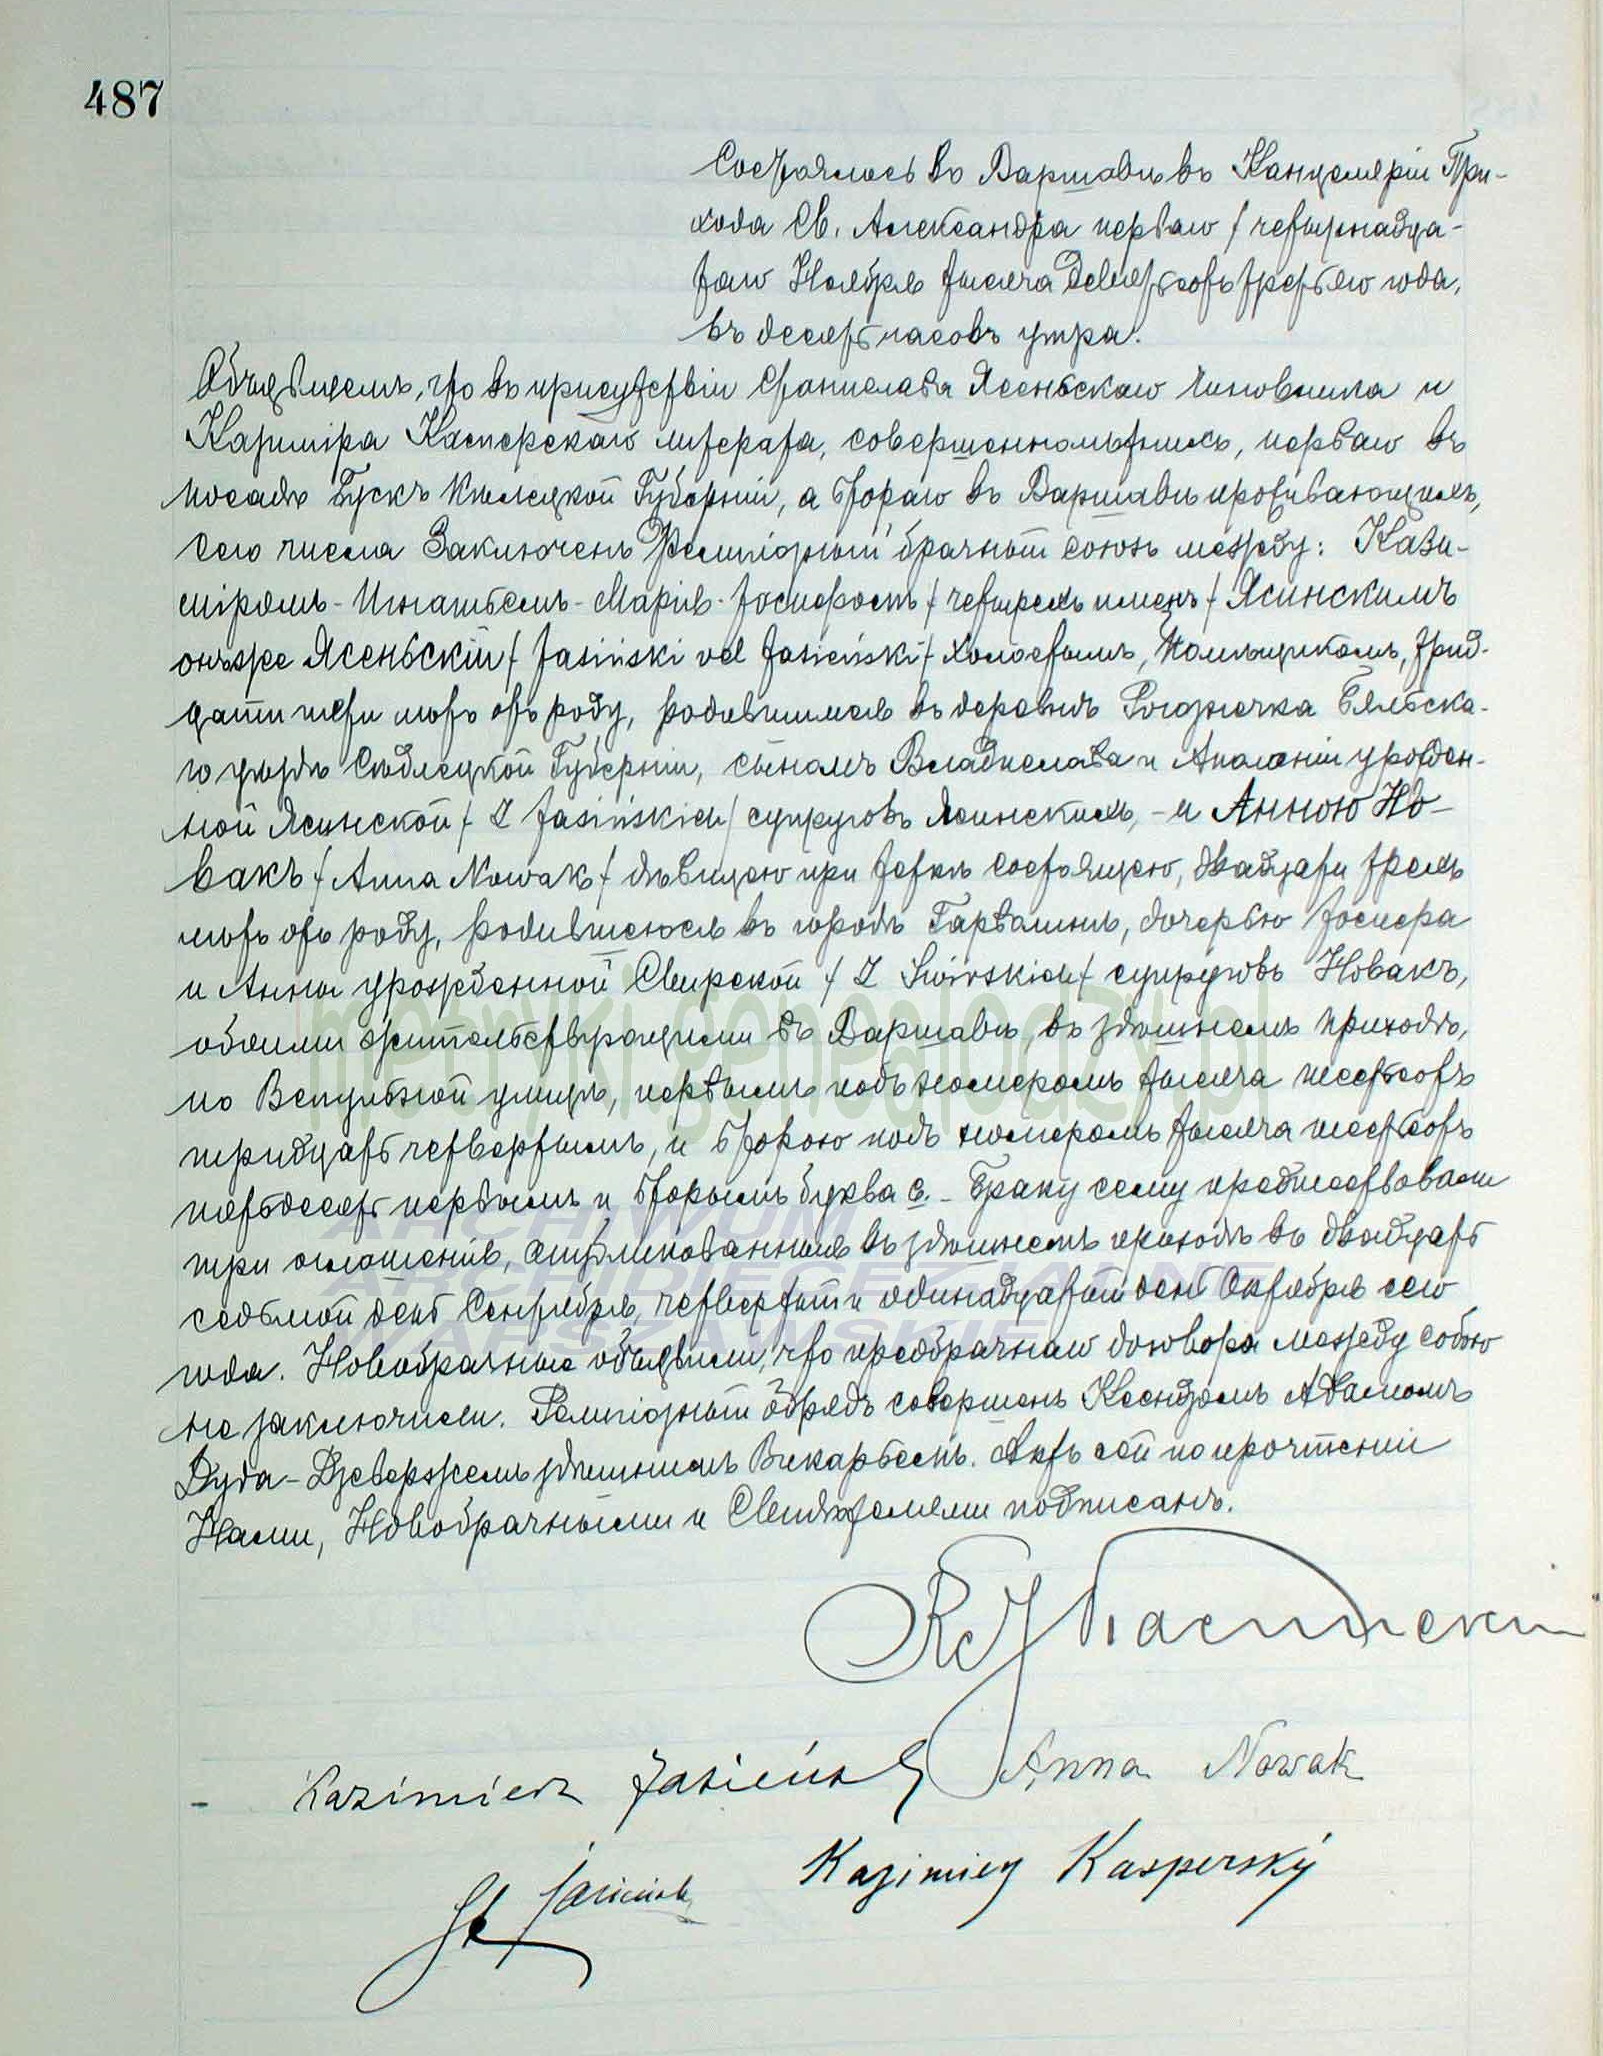 487
Состоялось въ Варшавѣ въ Канцеляріи При-
хода Св. Александра перваго / четырнадца-
таго Ноября тысяча девятьсотъ третьяго года,
въ десять часовъ утра.
Объявляемъ, что въ присутствіи Станислава Ясеньскаго чиновника и
Казиміра Касперскаго литерата, совершеннолѣтнихъ, перваго въ
посадѣ Бускъ Кѣлецкой Губерніи, а втораго въ Варшавѣ проживающихъ,
сего числа заключенъ Религіозный брачный союзъ между: Кази-
міромъ - Игнатьемъ - Марія - Іосифомъ / четырехъ именъ / Ясинскимъ
онъ же Ясеньскій / Jasiński vel Jasieński / холостымъ, помѣщикомъ, трид-
цати пяти лѣтъ отъ роду, родившимся въ деревнѣ Рогозничка Бяльска-
го уѣзда Сѣдлецкой Губерніи, сыномъ Владислава и Аполоніи урожден-
ной Ясинской / z Jasińskich / супруговъ Ясинскихъ, - и Анною Но-
вакъ / Anna Nowak / дѣвицею при теткѣ состоящею, двадцати трехъ
лѣтъ отъ роду, родившеюся въ городѣ Гарволинѣ, дочерью Іосифа
и Анны урожденной Свирской / z Świrskich / супруговъ Новакъ,
обоими жительствующими въ Варшавѣ, въ здѣшнемъ приходѣ,
по Вспульной улицѣ, первымъ подъ номеромъ тысяча шестьсотъ
тридцать четвертымъ, и второю подъ номеромъ тысяча шестьсотъ
пятьдесятъ первымъ и вторымъ буква с. - Браку сему предшествовали
три оглашенія, опубликованныя въ здѣшнемъ приходѣ въ двадцать
седьмой день Сентября, четвертый и одинадцатый день Октября сего
года. Новобрачные объявили, что предбрачнаго договора между собою
не заключили. Религіозный обрядъ совершенъ Ксендзомъ Адамомъ
Дуда - Дзевержемъ здѣшнимъ Викарьемъ. Актъ сей по прочтеніи
Нами, Новобрачными и Свидѣтелями подписанъ.
Kazimierz Jasieński Anna Nowak
St Jasieński Kazimierz Kasperský
metryki.genealodzy.pl
ARCHIWUM
ARCHIDIECEZJALNE
WARSZAWSKIE